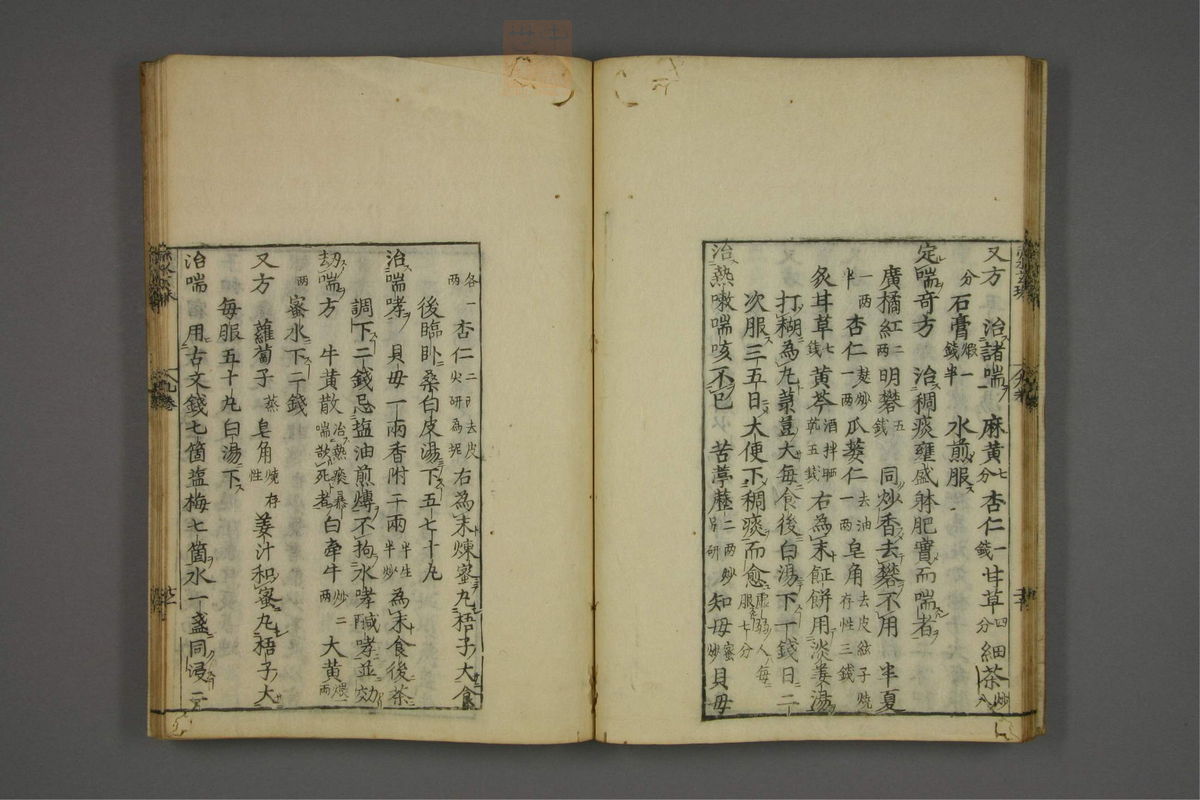 又方 治諸喘 麻黄七分 杏仁一錢 甘草四分 細茶炒八
分 石膏煅一錢半 水煎服
定喘奇方 治稠痰壅盛躰肥實而喘者
廣橘紅二両 明礬五錢 同炒香去礬不用 半夏
一両半 杏仁麸炒一両 瓜蔞仁去油一両 皂角去皮絃子燒存性三錢
炙甘草七錢 黄芩酒拌晒乾五錢 右為末 餅用淡姜湯
打糊為丸菉豆大每食後白湯下一錢日二
次服三五日大便下稠痰而愈虛弱人每服七分
治熱嗽喘咳不已 苦葶藶二両炒另研 知母蜜炒 貝母
各一両 杏仁二両去皮尖研為坭 右為末煉蜜丸梧子大食
後臨卧桑白皮湯下五七十丸
治喘哮 貝母一兩香附二兩半生半炒 為末食後茶
調下二錢忌塩油煎煿不拘水哮醎哮並効
劫喘方 牛黄散治熱痰暴喘欲死者 白牽牛炒二両 大黄煨両
両 蜜水下二錢
又方 蘿蔔子蒸 皂角燒存性 姜汁和蜜丸梧子大
每服五十丸白湯下
治喘 用古文錢七箇塩梅七箇水一盞同浸二